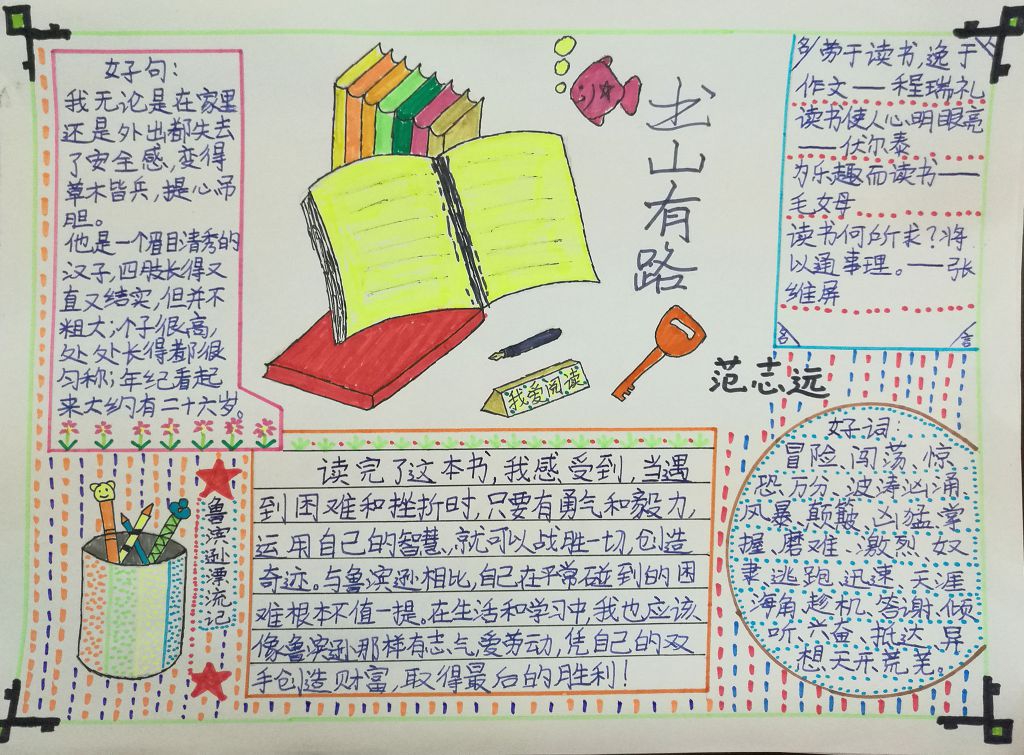 好句：
我无论是在家里
还是外出都失去
了安全感，变得
草木皆兵，提心吊
胆。
他是一个眉目清秀的
汉子，四肢长得又
直又结实，但并不
粗大；个子很高，
处处长得都很
匀称；年纪看起
来大约有二十六岁。
书山有路
我爱阅读
范志远
多劳于读书，逸于
作文——程瑞礼
读书使人心明眼亮
——伏尔泰
为乐趣而读书——
毛姆
读书何所求？将
以通事理。——张
维屏
名
言
鲁滨逊漂流记
读完了这本书，我感受到，当遇
到困难和挫折时，只要有勇气和毅力，
运用自己的智慧，就可以战胜一切，创造
奇迹。与鲁滨逊相比，自己在平常碰到的困
难根本不值一提。在生活和学习中，我也应该
像鲁滨逊那样有志气，爱劳动，凭自己的双
手创造财富，取得最后的胜利！
好词：
冒险、闯荡、惊
恐、万分、波涛汹涌、
风暴、颠簸、凶猛、掌
握、磨难、激烈、奴
隶、逃跑、迅速、天涯
海角、趁机、答谢、倾
听、六亩、抵达、异
想天开、荒芜。